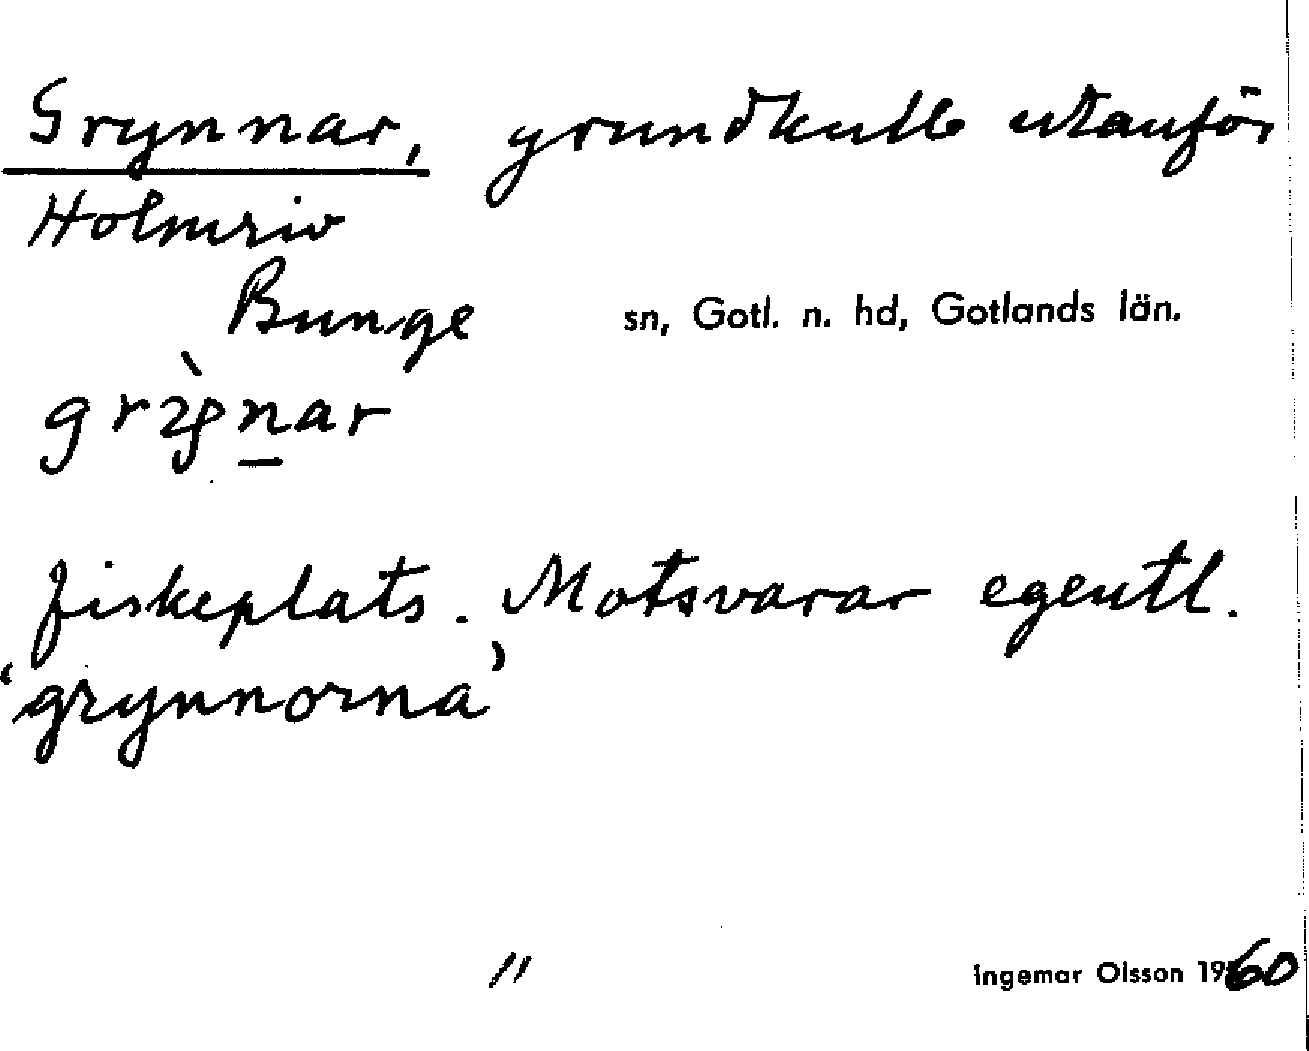 Grynnar, grundkulle utanför
Holmriv
Bunge sn, Gotl. n. hd, Gotlands län.
fiskeplats. Motsvarar egentl.
'grynnorna'
"
Ingemar Olsson 1960